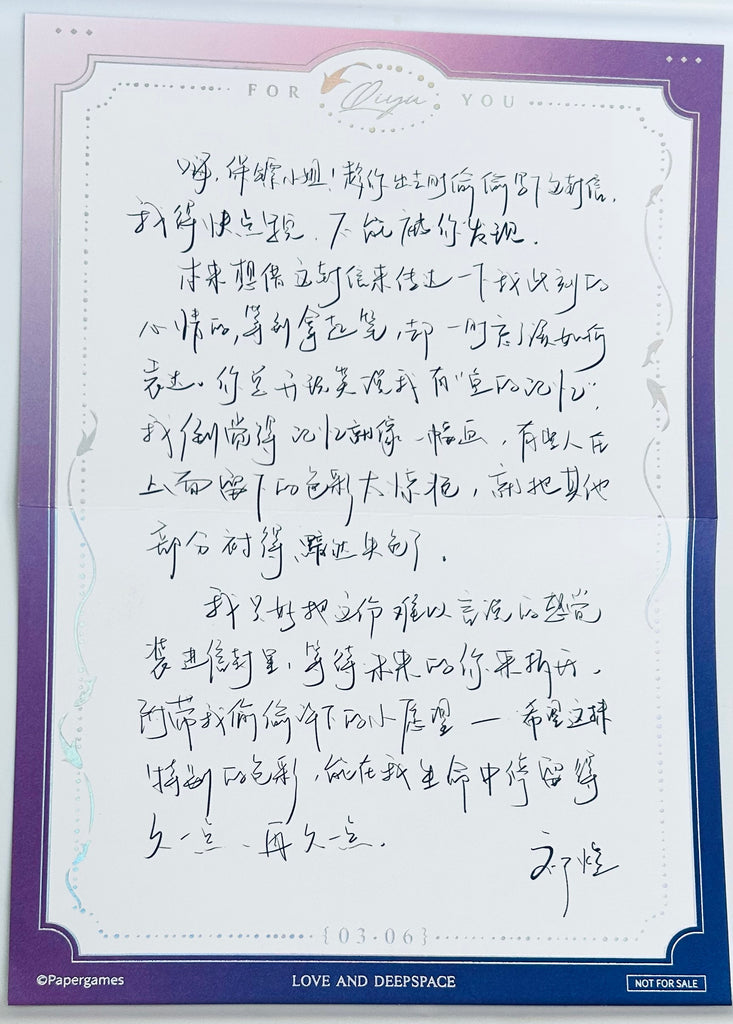 FOR Qiyu YOU
嘿,保镖小姐!趁你出去时偷偷写下这封信,
我得快点写完,不能被你发现。
本来想借这封信来传达一下我此刻的
心情的,等到拿起笔,却一时忘了该如何
表达。你总开玩笑说我有“鱼的记忆”,
我倒觉得记忆就像一幅画,有些人在
上面留下的色彩太浓艳,就把其他
部分衬得黯淡失色了。
我只好把这份难以言说的感觉
装进信封里,等待未来的你来拆开。
附带我偷偷许下的小愿望——希望这抹
特别的色彩,能在我生命中停留得
久一点、再久一点。
祁煜
{03·06}
©Papergames
LOVE AND DEEPSPACE
NOT FOR SALE